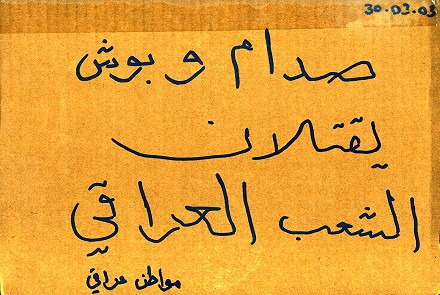 30.03.03
صدام و بوش
يقتلان
الشعب العراقي
مواطن عراقي